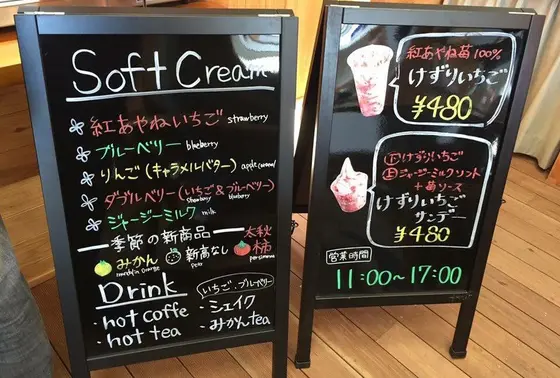 Soft Cream
紅あやねいちご strawberry
ブルーベリー blueberry
りんご(キャラメルバター) apple caramel
ダブルベリー(いちご&ブルーベリー)
strawberry blueberry
ジャージーミルク milk
季節の新商品
みかん 新高なし 太秋柿
mandarin orange pear persimmon
Drink
いちご・ブルーベリー
・hot coffe ・シェイク
・hot tea ・みかんtea
紅あやね苺100%
けずりいちご
¥480
下けずりいちご
上ジャージーミルクソフト
+苺ソース
けずりいちご
サンデー
¥480
営業時間
11:00~17:00